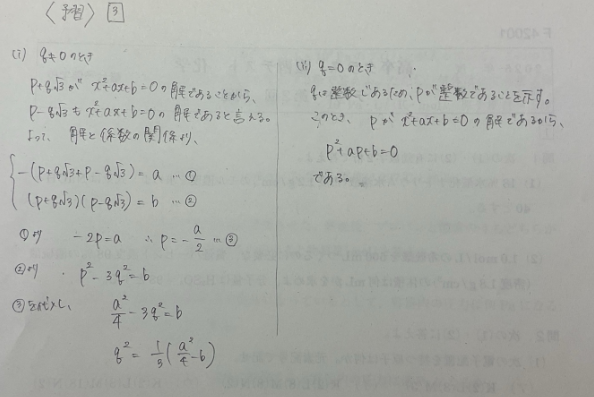 〈予習〉 3
(i) q≠0のとき
p+q√3が x²+ax+b=0の解であることから、
p-q√3も x²+ax+b=0の解であると言える。
よって、解と係数の関係より、
-(p+q√3+p-q√3)=a …①
(p+q√3)(p-q√3)=b …②
①より -2p=a ∴p=-a/2 …③
②より p²-3q²=b
③を代入し、 a²/4-3q²=b
q²=1/3(a²/4-b)
(ii) q=0のとき
qは整数であるため、pが整数であることを示す。
このとき、pが x²+ax+b=0の解であるから、
p²+ap+b=0
である。